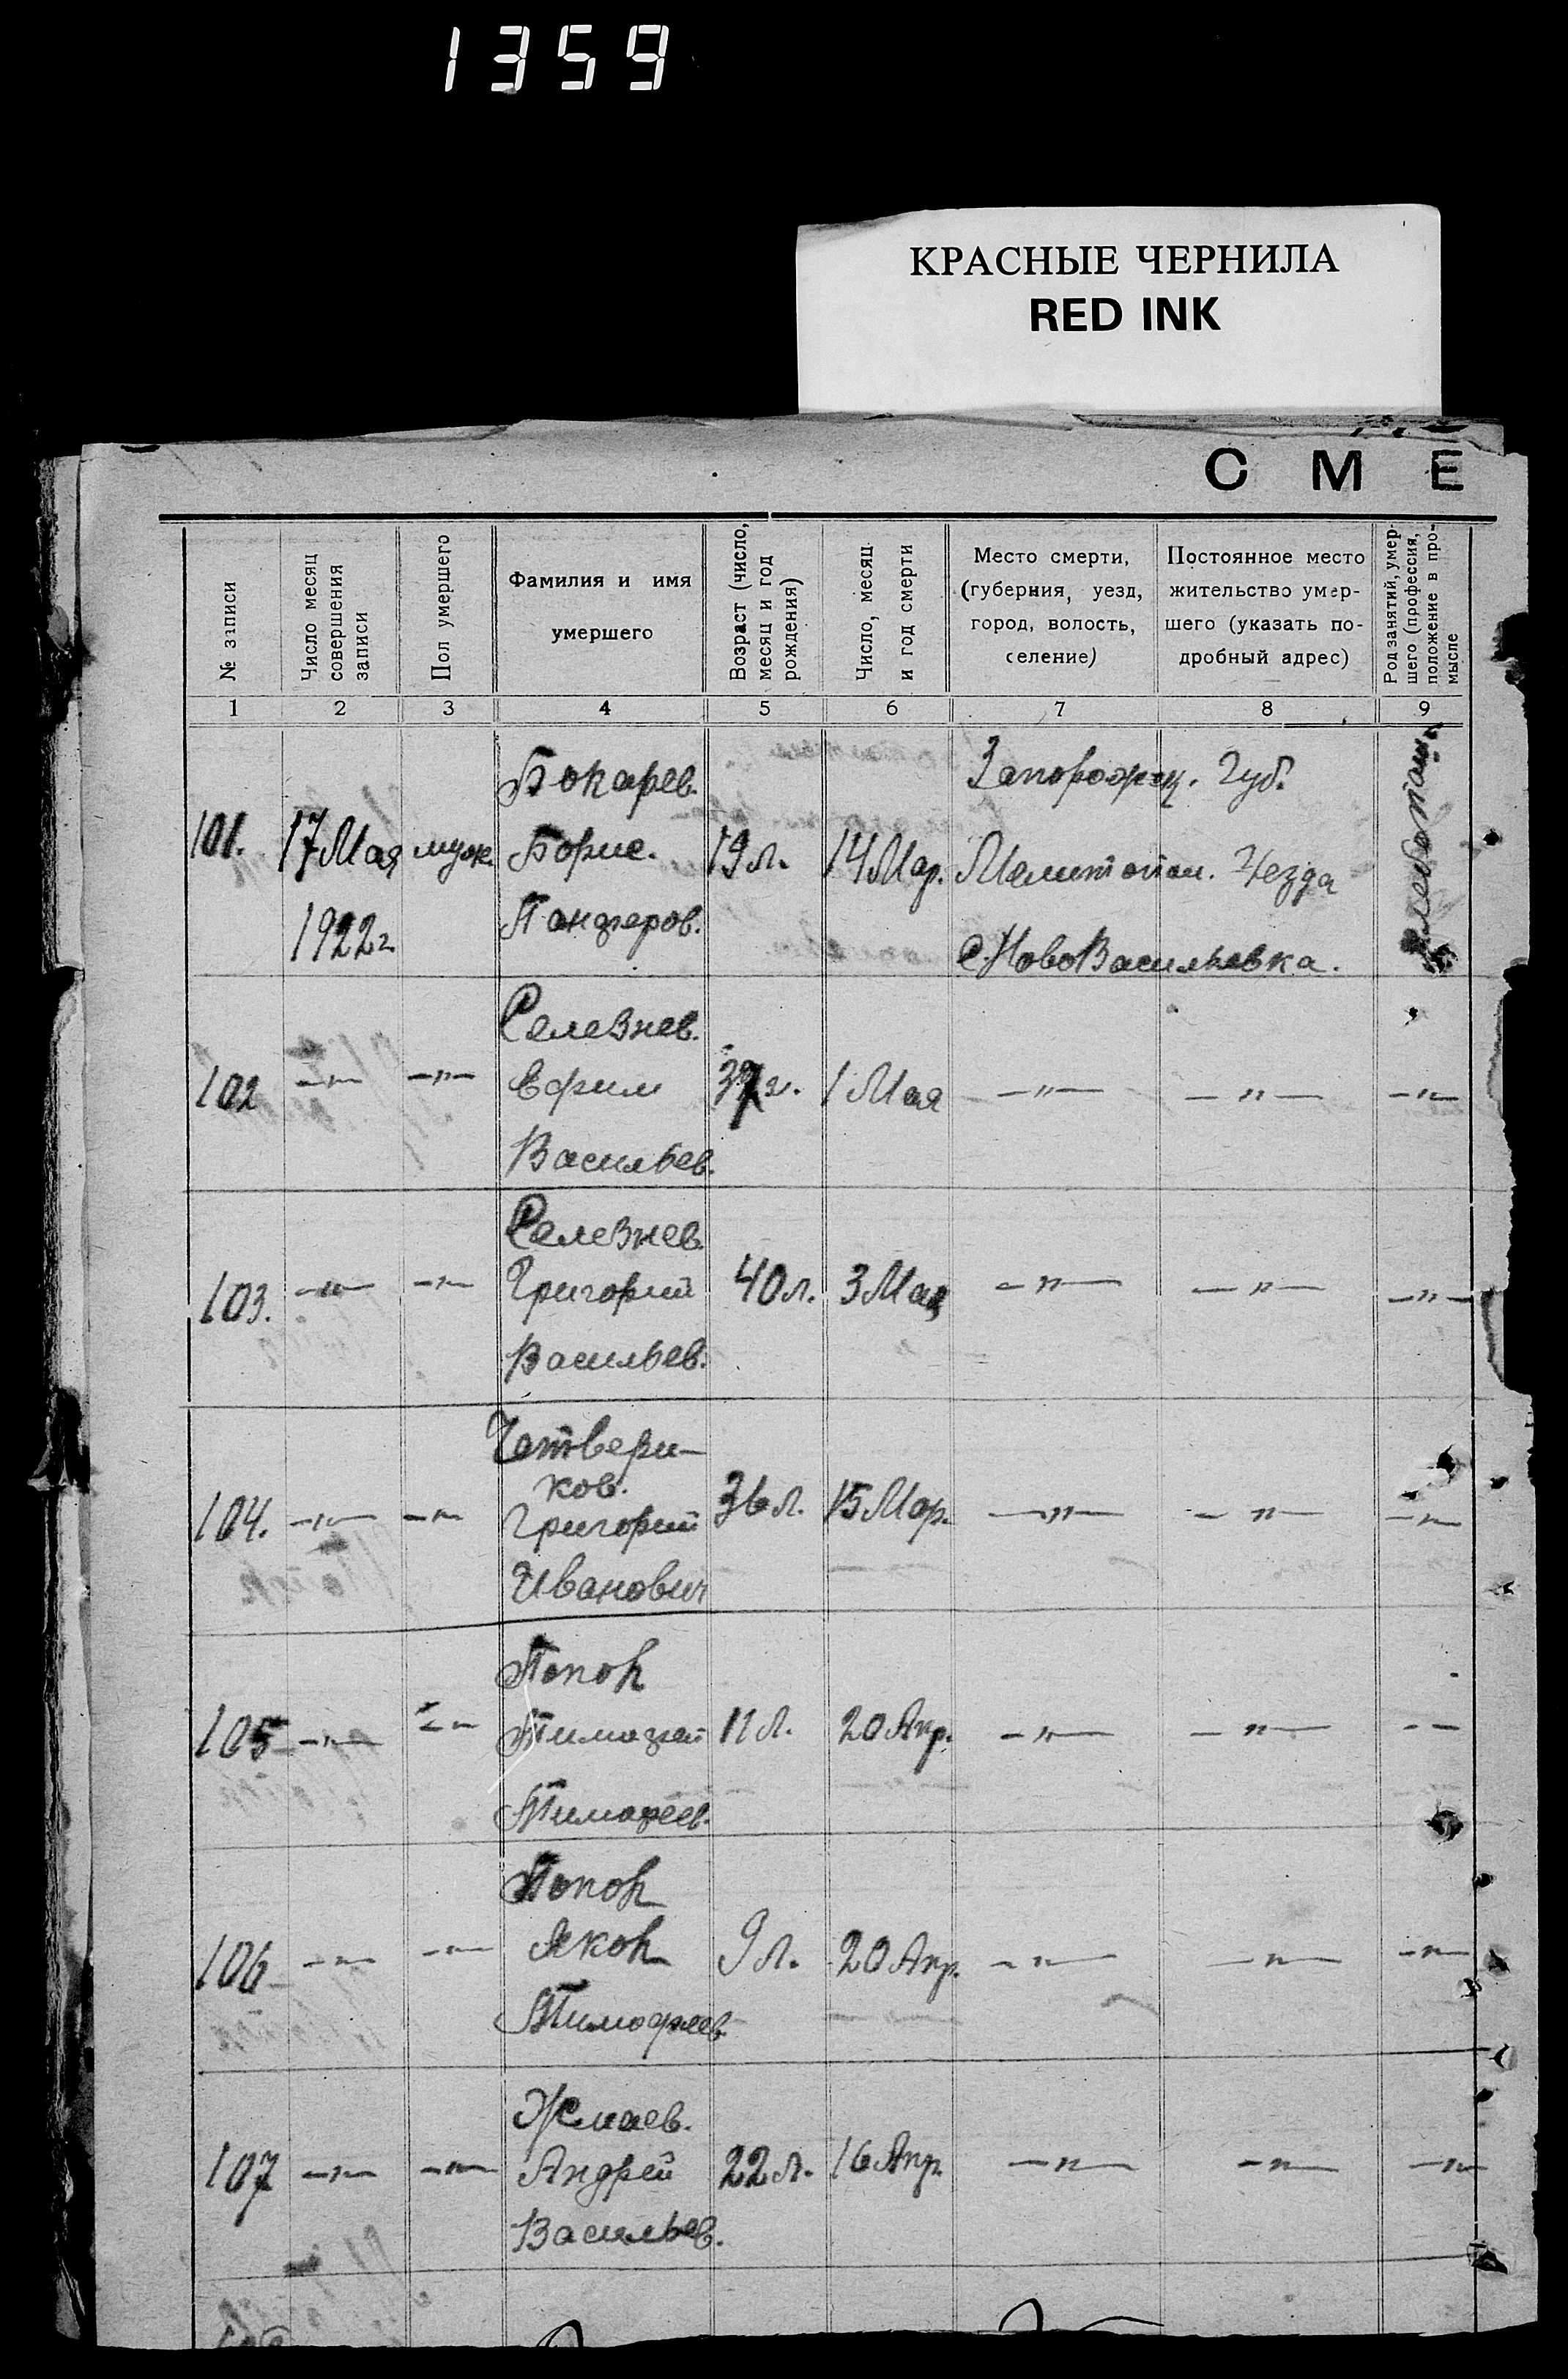 1359
КРАСНЫЕ ЧЕРНИЛА
RED INK
С М Е
№ записи
Число месяц
совершения
записи
Пол умершего
Фамилия и имя
умершего
Возраст (число,
месяц и год
рождения)
Число, месяц
и год смерти
Место смерти,
(губерния, уезд,
город, волость,
селение)
Постоянное место
жительство умер-
шего (указать по-
дробный адрес)
Род занятий, умер-
шего (профессия,
положение в про-
мысле
1 2 3 4 5 6 7 8 9
Бокарев. Запорожск. Губ.
101. 17 Мая муж. Борис. 19 л. 14 Мар. Мелитопол. Уезда
1922 г. Панферов. с. НовоВасильевка.
Селезнев.
102 —"— —"— Ефим 1 Мая —"— —"— —"—
Васильев.
Селезнев.
103. —"— —"— Григорий 40 л. 3 Мая —"— —"— —"—
Васильев.
Четвери-
ков.
104. —"— —"— Григорий 36 л. 15 Мар. —"— —"— —"—
Иванович
Попов
105 —"— —"— Тимофей 11 л. 20 Апр. —"— —"— — —
Тимофеев.
Попов
106 —"— —"— Яков 9 л. 20 Апр. —"— —"— —"—
Тимофеев.
Жмаев.
107 —"— —"— Андрей 22 л. 16 Апр. —"— —"— —"—
Васильев.